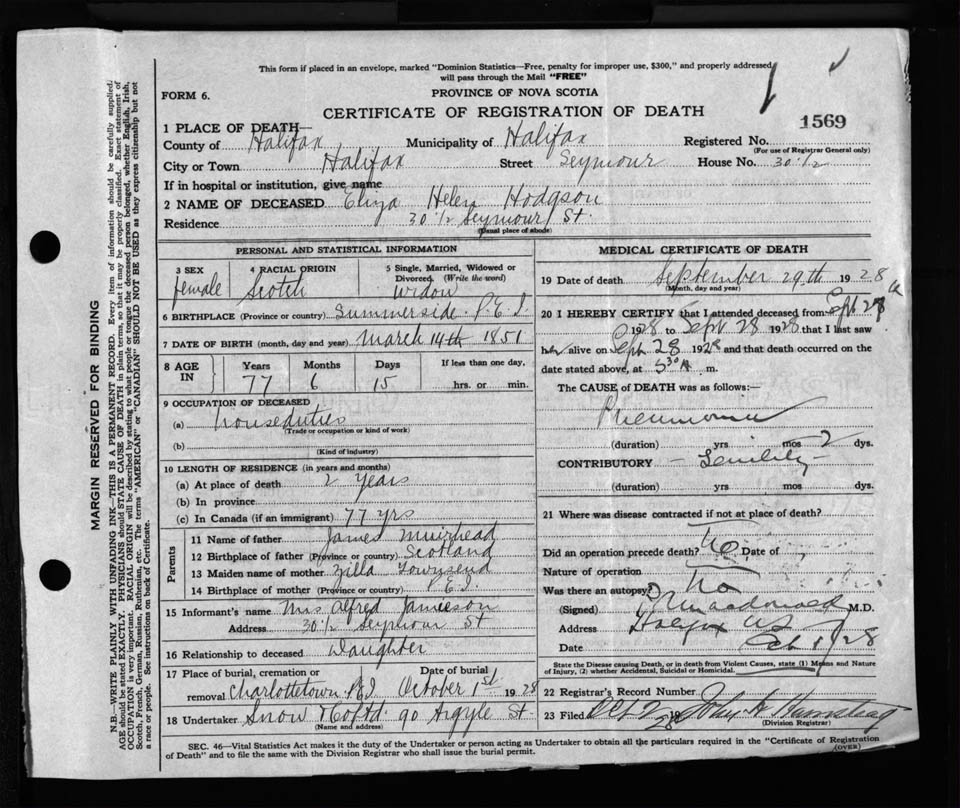 This form if placed in an envelope, marked "Dominion Statistics—Free, penalty for improper use, $300," and properly addressed
will pass through the Mail "FREE"
FORM 6.
PROVINCE OF NOVA SCOTIA
CERTIFICATE OF REGISTRATION OF DEATH
1569
1 PLACE OF DEATH—
County of Halifax Municipality of Halifax Registered No.
(For use of Registrar General only)
City or Town Halifax Street Seymour House No. 30 1/2
If in hospital or institution, give name
2 NAME OF DECEASED Eliza Helen Hodgson
Residence 30 1/2 Seymour St.
(Usual place of abode)
PERSONAL AND STATISTICAL INFORMATION
3 SEX female
4 RACIAL ORIGIN Scotch
5 Single, Married, Widowed or Divorced. (Write the word) widow
6 BIRTHPLACE (Province or country) Summerside P.E.I.
7 DATE OF BIRTH (month, day and year) March 14th 1851
8 AGE IN Years 77 Months 6 Days 15 If less than one day, hrs. or min.
9 OCCUPATION OF DECEASED
(a) houseduties
(Trade or occupation or kind of work)
(b)
(Kind of industry)
10 LENGTH OF RESIDENCE (in years and months)
(a) At place of death 2 years
(b) In province
(c) In Canada (if an immigrant) 77 yrs
Parents
11 Name of father James Muirhead
12 Birthplace of father (Province or country) Scotland
13 Maiden name of mother Zilla Townsend
14 Birthplace of mother (Province or country) P.E.I.
15 Informant's name Mrs Alfred Jamieson
Address 30 1/2 Seymour St
16 Relationship to deceased Daughter
17 Place of burial, cremation or removal Charlottetown P.E.I Date of burial October 1st 1928
18 Undertaker Snow & Co Ltd 90 Argyle St
(Name and address)
MEDICAL CERTIFICATE OF DEATH
19 Date of death September 29th 1928
(Month, day and year)
20 I HEREBY CERTIFY that I attended deceased from Sept 28
1928 to Sept 28 1928 that I last saw
her alive on Sept 28 1928 and that death occurred on the
date stated above, at 5 30 A m.
The CAUSE of DEATH was as follows:—
Pneumonia
(duration) yrs mos 2 dys.
CONTRIBUTORY Senility
(duration) yrs. mos. dys.
21 Where was disease contracted if not at place of death?
Did an operation precede death? No Date of
Nature of operation
Was there an autopsy? No
(Signed) M.D.
Address Halifax NS
Date 28
State the Disease causing Death, or in death from Violent Causes, state (1) Means and Nature of Injury, (2) whether Accidental, Suicidal or Homicidal.
22 Registrar's Record Number
23 Filed Oct 2 1928 John
(Division Registrar)
SEC. 46—Vital Statistics Act makes it the duty of the Undertaker or person acting as Undertaker to obtain all the particulars required in the "Certificate of Registration
of Death" and to file the same with the Division Registrar who shall issue the burial permit.
(OVER)
MARGIN RESERVED FOR BINDING
N.B.—WRITE PLAINLY WITH UNFADING INK—THIS IS A PERMANENT RECORD. Every item of information should be carefully supplied.
AGE should be stated EXACTLY. PHYSICIANS should STATE CAUSE OF DEATH in plain terms, so that it may be properly classified. Exact statement of
OCCUPATION is very important. RACIAL ORIGIN will be described by stating to what people or tongue the deceased person belonged, whether English, Irish,
Scotch, French, German, Russian, Ruthenian, etc. The terms "AMERICAN" or "CANADIAN" SHOULD NOT BE USED as they express citizenship but not
a race or people. See instructions on back of Certificate.